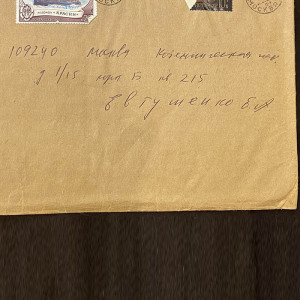 109240 Москва Котельническая наб
д 1/15 корп В кв 215
Евтушенко Е.А